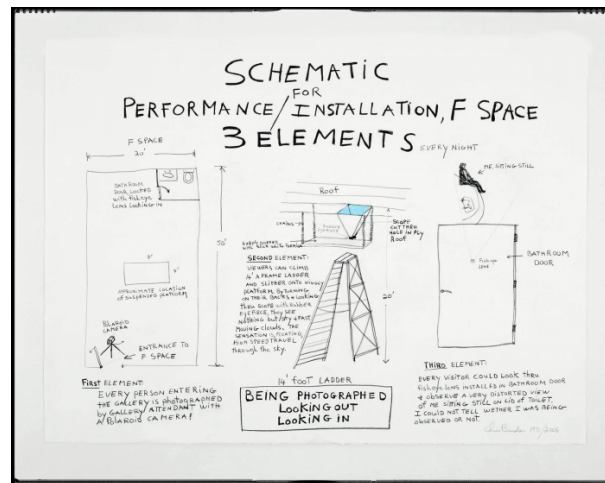 SCHEMATIC
FOR
PERFORMANCE/INSTALLATION, F SPACE
3 ELEMENTS
F SPACE
20'
BATHROOM
DOOR LOCKED
with fisheye
LENS LOOKING IN
50'
APPROXIMATE LOCATION
OF SUSPENDED PLATFORM
POLAROID
CAMERA
ENTRANCE TO
F SPACE
FIRST ELEMENT:
EVERY PERSON ENTERING
THE GALLERY IS PHOTOGRAPHED
BY GALLERY ATTENDANT WITH
A POLAROID CAMERA!
ROOF
CHAINS
SCOPE
CUT THRU
HOLE IN PLY
ROOF
SECOND ELEMENT:
VIEWERS CAN CLIMB
14' A FRAME LADDER
AND SLITHER ONTO
PLATFORM. BY TURNING
ON THEIR BACKS & LOOKING
THRU SCOPE WITH RUBBER
EYEPIECE, THEY SEE
NOTHING BUT SKY & FAST
MOVING CLOUDS. THE
SENSATION IS FLOATING,
HIGH SPEED TRAVEL
THROUGH THE SKY.
20'
14' FOOT LADDER
BEING PHOTOGRAPHED
LOOKING OUT
LOOKING IN
EVERY NIGHT
ME SITTING STILL
Fisheye
LENS
BATHROOM
DOOR
THIRD ELEMENT:
EVERY VISITOR COULD LOOK THRU
fisheye LENS INSTALLED IN BATHROOM DOOR
& OBSERVE A VERY DISTORTED VIEW
OF ME SITTING STILL ON LID OF TOILET.
I COULD NOT TELL WETHER I WAS BEING
OBSERVED OR NOT.
Chris Burden